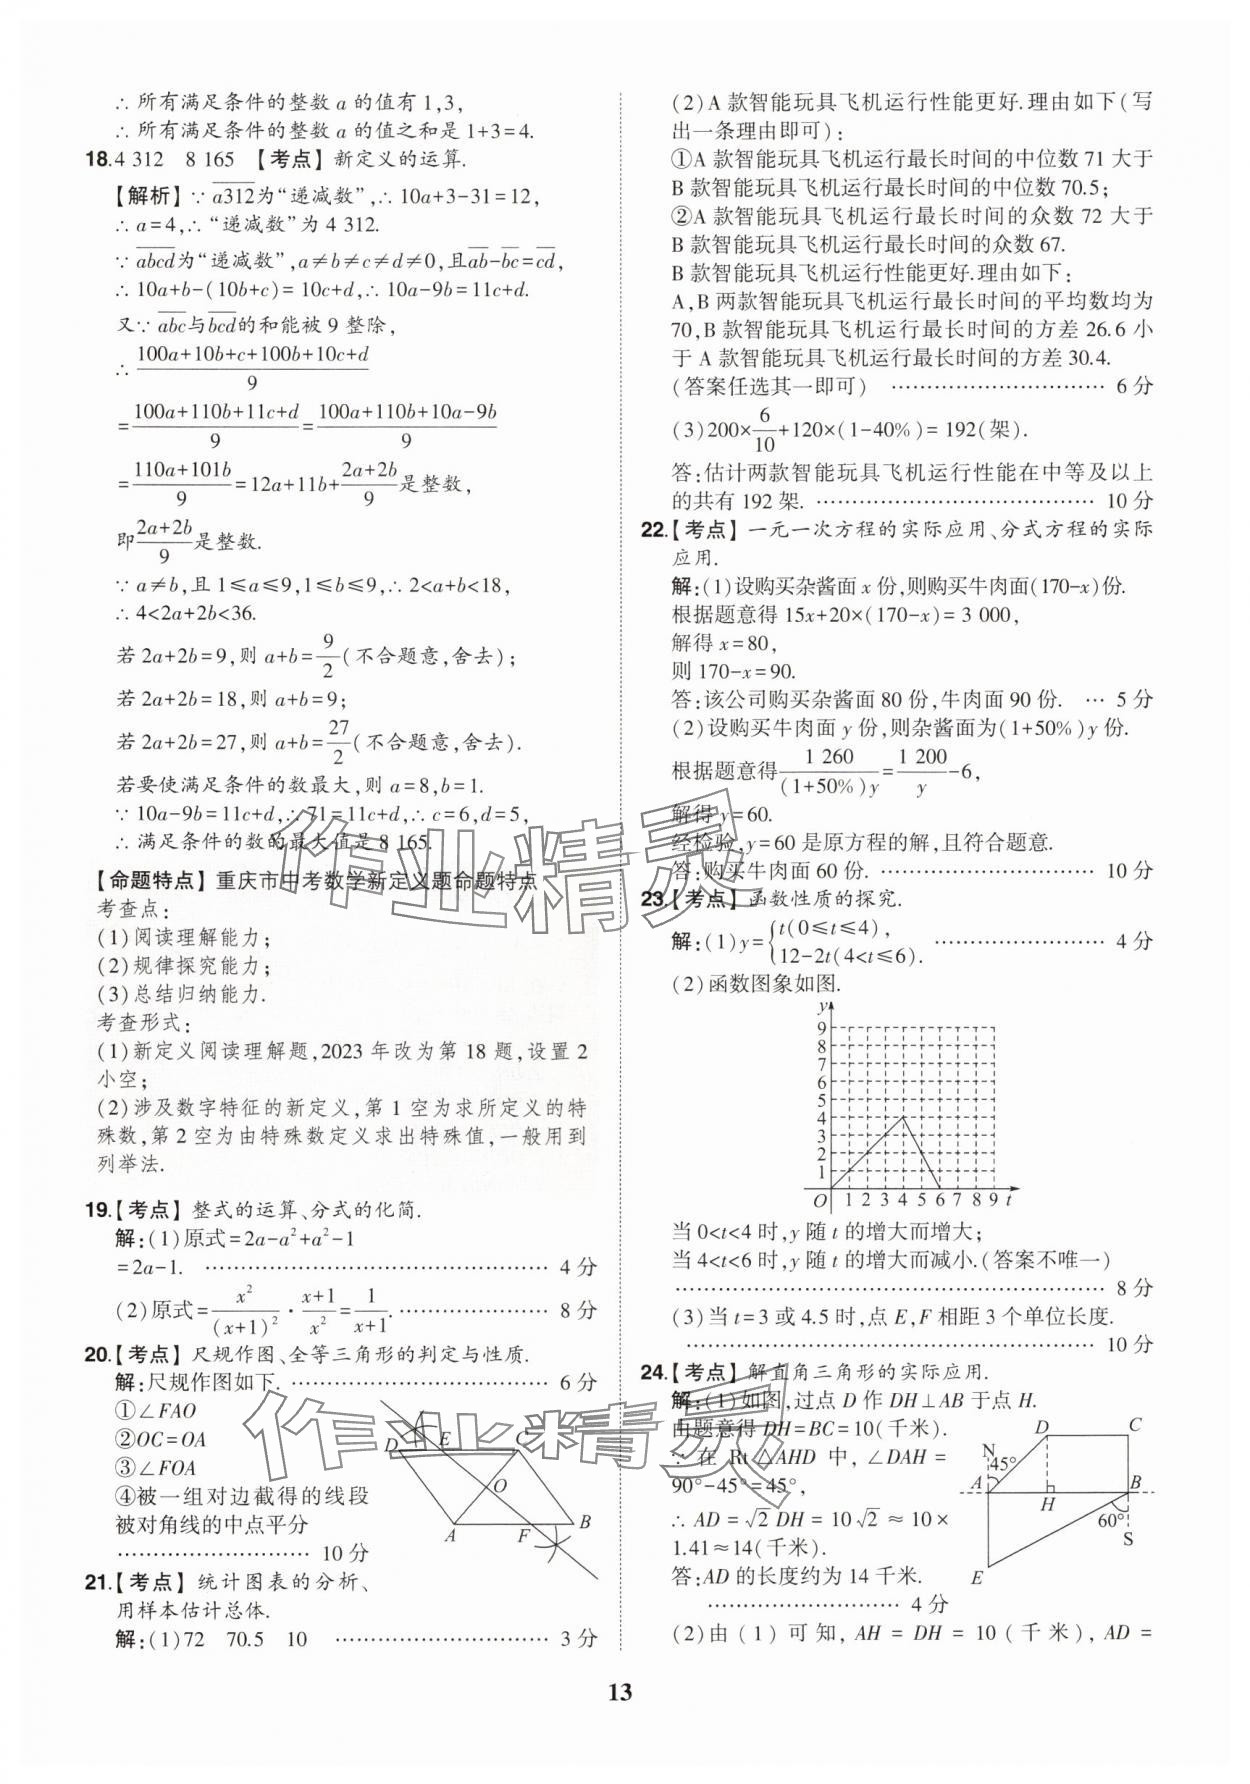 ∴ 所有满足条件的整数 a 的值有 1,3,
∴ 所有满足条件的整数 a 的值之和是 1+3=4.
18.4 312　8 165　【考点】新定义的运算.
【解析】∵ \overline{a312}为“递减数”,∴ 10a+3-31=12,
∴ a=4,∴ “递减数”为 4 312.
∵ \overline{abcd}为“递减数”,a≠b≠c≠d≠0,且\overline{ab}-\overline{bc}=\overline{cd},
∴ 10a+b-(10b+c)=10c+d,∴ 10a-9b=11c+d.
又∵ \overline{abc}与\overline{bcd}的和能被 9 整除,
∴ \frac{100a+10b+c+100b+10c+d}{9}
=\frac{100a+110b+11c+d}{9}=\frac{100a+110b+10a-9b}{9}
=\frac{110a+101b}{9}=12a+11b+\frac{2a+2b}{9}是整数,
即\frac{2a+2b}{9}是整数.
∵ a≠b,且 1≤a≤9,1≤b≤9,∴ 2<a+b<18,
∴ 4<2a+2b<36.
若 2a+2b=9,则 a+b=\frac{9}{2}(不合题意,舍去);
若 2a+2b=18,则 a+b=9;
若 2a+2b=27,则 a+b=\frac{27}{2}(不合题意,舍去).
若要使满足条件的数最大,则 a=8,b=1.
∵ 10a-9b=11c+d,∴71=11c+d,∴ c=6,d=5,
∴ 满足条件的数的最大值是 8 165.
【命题特点】重庆市中考数学新定义题命题特点
考查点:
(1)阅读理解能力;
(2)规律探究能力;
(3)总结归纳能力.
考查形式:
(1)新定义阅读理解题,2023 年改为第 18 题,设置 2
小空;
(2)涉及数字特征的新定义,第 1 空为求所定义的特
殊数,第 2 空为由特殊数定义求出特殊值,一般用到
列举法.
19.【考点】整式的运算、分式的化简.
解:(1)原式=2a-a²+a²-1
=2a-1. …………………………………… 4 分
(2)原式=\frac{x²}{(x+1)²}·\frac{x+1}{x²}=\frac{1}{x+1}. ………………… 8 分
20.【考点】尺规作图、全等三角形的判定与性质.
解:尺规作图如下. ……………………………… 6 分
①∠FAO
②OC=OA
③∠FOA
④被一组对边截得的线段
被对角线的中点平分
……………………… 10 分
D E C
O
A F B
21.【考点】统计图表的分析、
用样本估计总体.
解:(1)72　70.5　10　………………………… 3 分
(2)A 款智能玩具飞机运行性能更好.理由如下(写
出一条理由即可):
①A 款智能玩具飞机运行最长时间的中位数 71 大于
B 款智能玩具飞机运行最长时间的中位数 70.5;
②A 款智能玩具飞机运行最长时间的众数 72 大于
B 款智能玩具飞机运行最长时间的众数 67.
B 款智能玩具飞机运行性能更好.理由如下:
A,B 两款智能玩具飞机运行最长时间的平均数均为
70,B 款智能玩具飞机运行最长时间的方差 26.6 小
于 A 款智能玩具飞机运行最长时间的方差 30.4.
(答案任选其一即可) ………………………… 6 分
(3)200×\frac{6}{10}+120×(1-40%)=192(架).
答:估计两款智能玩具飞机运行性能在中等及以上
的共有 192 架. ………………………………… 10 分
22.【考点】一元一次方程的实际应用、分式方程的实际
应用.
解:(1)设购买杂酱面 x 份,则购买牛肉面(170-x)份.
根据题意得 15x+20×(170-x)=3 000,
解得 x=80,
则 170-x=90.
答:该公司购买杂酱面 80 份,牛肉面 90 份. … 5 分
(2)设购买牛肉面 y 份,则杂酱面为(1+50%)y 份.
根据题意得\frac{1 260}{(1+50%)y}=\frac{1 200}{y}-6,
解得 y=60.
经检验,y=60 是原方程的解,且符合题意.
答:购买牛肉面 60 份. ………………………… 10 分
23.【考点】函数性质的探究.
解:(1)y={t(0≤t≤4), …………………… 4 分
12-2t(4<t≤6).
(2)函数图象如图.
y
9
8
7
6
5
4
3
2
1
O 1 2 3 4 5 6 7 8 9 t
当 0<t<4 时,y 随 t 的增大而增大;
当 4<t<6 时,y 随 t 的增大而减小.(答案不唯一)
………………………………………………… 8 分
(3)当 t=3 或 4.5 时,点 E,F 相距 3 个单位长度.
………………………………………………… 10 分
24.【考点】解直角三角形的实际应用.
解:(1)如图,过点 D 作 DH⊥AB 于点 H.
由题意得 DH=BC=10(千米).
∵ 在 Rt△AHD 中,∠DAH=
90°-45°=45°,
∴ AD=√2 DH=10√2≈10×
1.41≈14(千米).
答:AD 的长度约为 14 千米.
……………………… 4 分
D C
N
45°
A H B
60°
S
E
(2)由(1)可知,AH=DH=10(千米),AD=
13
作业精灵
作业精灵